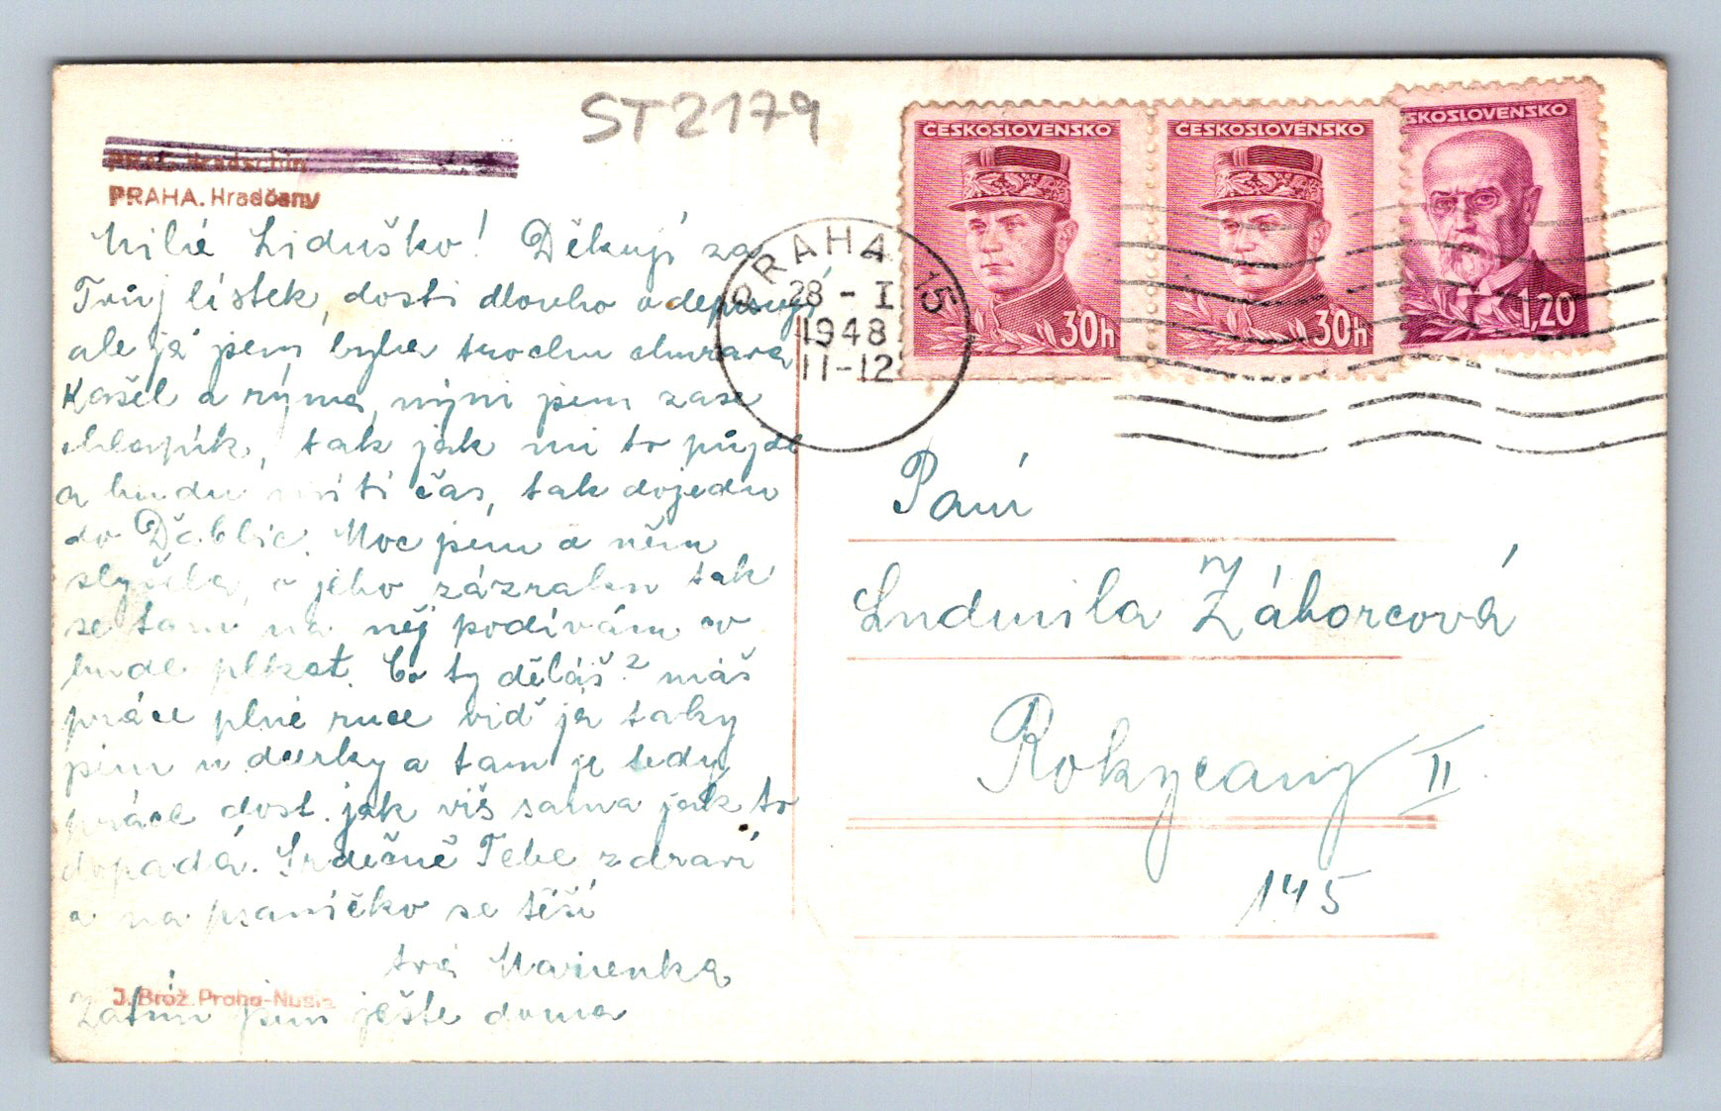 ST2179
PRAHA. Hradčany
ČESKOSLOVENSKO
30h
ČESKOSLOVENSKO
30h
ČESKOSLOVENSKO
1,20
PRAHA 15
28 - I
1948
11-12
Milá Liduško! Děkuji za
Tvůj lístek, dosti dlouho
ale já jsem byla trochu churava
Kašel a rýma, nyní jsem zase
chlapík, tak jak mi to půjde
a budu míti čas, tak dojedu
do Ďáblic. Moc jsem o něm
slyšela, o jeho zázraku tak
se tam na něj podívám co
bude plkat. Co ty děláš? máš
práce plné ruce viď já taky
jsem u dcerky a tam je tedy
práce dost. jak víš sama jak to
dopadá. Srdečně Tebe zdraví
a na psaníčko se těší
tvá Mařenka
Zatím jsem ještě doma
J. Brož. Praha-Nusle
Paní
Ludmila Záhorcová
Rokycany II
145